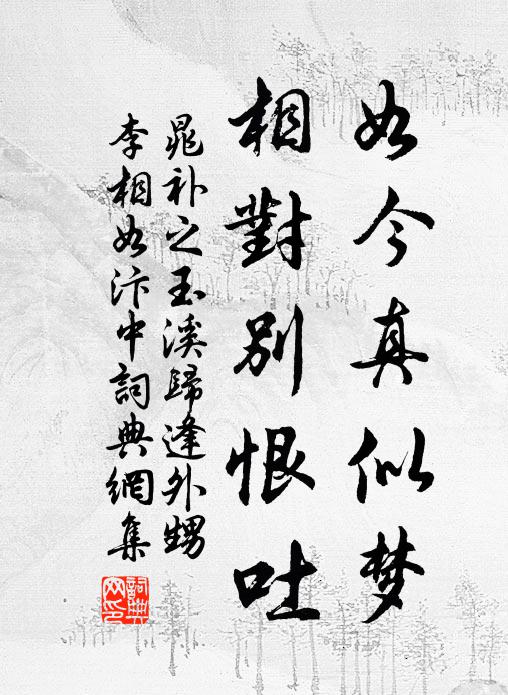 如今真似梦
相對别恨吐
晁补之玉溪歸逢外甥
李相如汴中詞典網集